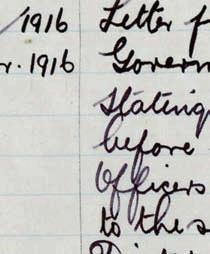 1916 Letter f
r. 1916 Govern
stating
before
Officers
to the s